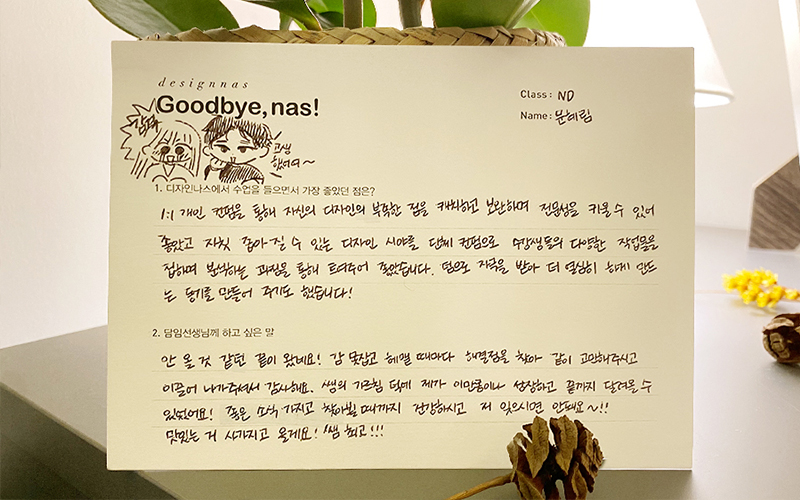 designnas
Goodbye, nas!
Class: ND
Name: 문혜림
감동
고생
했어여~
1. 디자인나스에서 수업을 들으면서 가장 좋았던 점은?
1:1 개인 컨펌을 통해 자신의 디자인의 부족한 점을 캐치하고 보완하며 전문성을 키울 수 있어
좋았고 자칫 좁아질 수 있는 디자인 시야를 단체 컨펌으로 수강생들의 다양한 작업물을
접하며 분석하는 과정을 통해 트여주어 좋았습니다. 덤으로 자극을 받아 더 열심히 하게 만드
는 동기를 만들어 주기도 했습니다!
2. 담임선생님께 하고 싶은 말
안 올 것 같던 끝이 왔네요! 감 못잡고 헤맬 때마다 해결점을 찾아 같이 고민해주시고
이끌어 나가주셔서 감사해요. 쌤의 가르침 덕에 제가 이만큼이나 성장하고 끝까지 달려올 수
있었어요! 좋은 소식 가지고 찾아뵐 때까지 건강하시고 저 잊으시면 안돼요~!!
맛있는 거 사가지고 올게요! 쌤 최고!!!